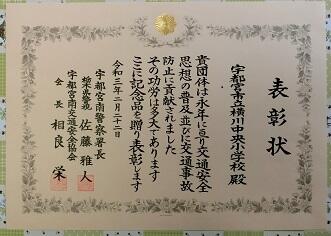 表彰状
宇都宮市立横川中央小学校 殿
貴団体は永年に亘り交通安全
思想の普及並びに交通事故
防止に貢献されました
その功労は多大であります
ここに記念品を贈り表彰します
令和三年二月二十二日
宇都宮南警察署長
栃木県警視 佐藤雅人
宇都宮南交通安全協会
会長 相良栄